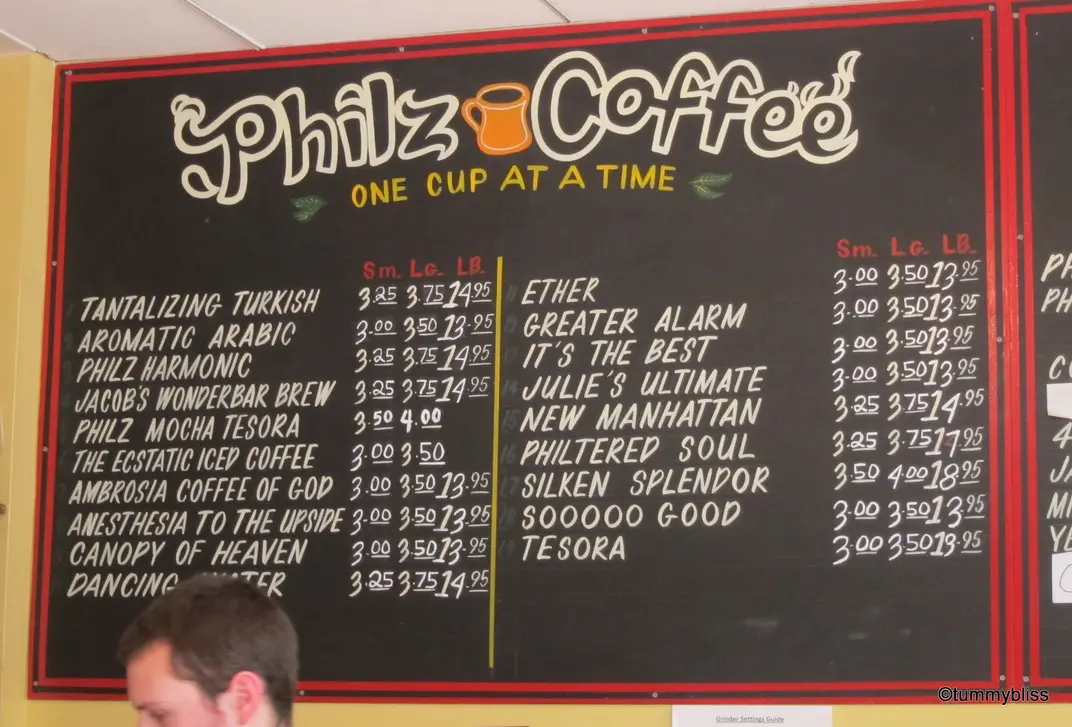 Philz Coffee
ONE CUP AT A TIME
Sm. LG. LB.
TANTALIZING TURKISH 3.25 3.75 14.95
AROMATIC ARABIC 3.00 3.50 13.95
PHILZ HARMONIC 3.25 3.75 14.95
JACOB'S WONDERBAR BREW 3.25 3.75 14.95
PHILZ MOCHA TESORA 3.50 4.00
THE ECSTATIC ICED COFFEE 3.00 3.50
AMBROSIA COFFEE OF GOD 3.00 3.50 13.95
ANESTHESIA TO THE UPSIDE 3.00 3.50 13.95
CANOPY OF HEAVEN 3.00 3.50 13.95
DANCING 3.25 3.75 14.95
Sm. LG. LB.
ETHER 3.00 3.50 13.95
GREATER ALARM 3.00 3.50 13.95
IT'S THE BEST 3.00 3.50 13.95
JULIE'S ULTIMATE 3.00 3.50 13.95
NEW MANHATTAN 3.25 3.75 14.95
PHILTERED SOUL 3.25 3.75 17.95
SILKEN SPLENDOR 3.50 4.00 18.95
SOOOOO GOOD 3.00 3.50 13.95
TESORA 3.00 3.50 13.95
Grinder Settings Guide
©tummybliss